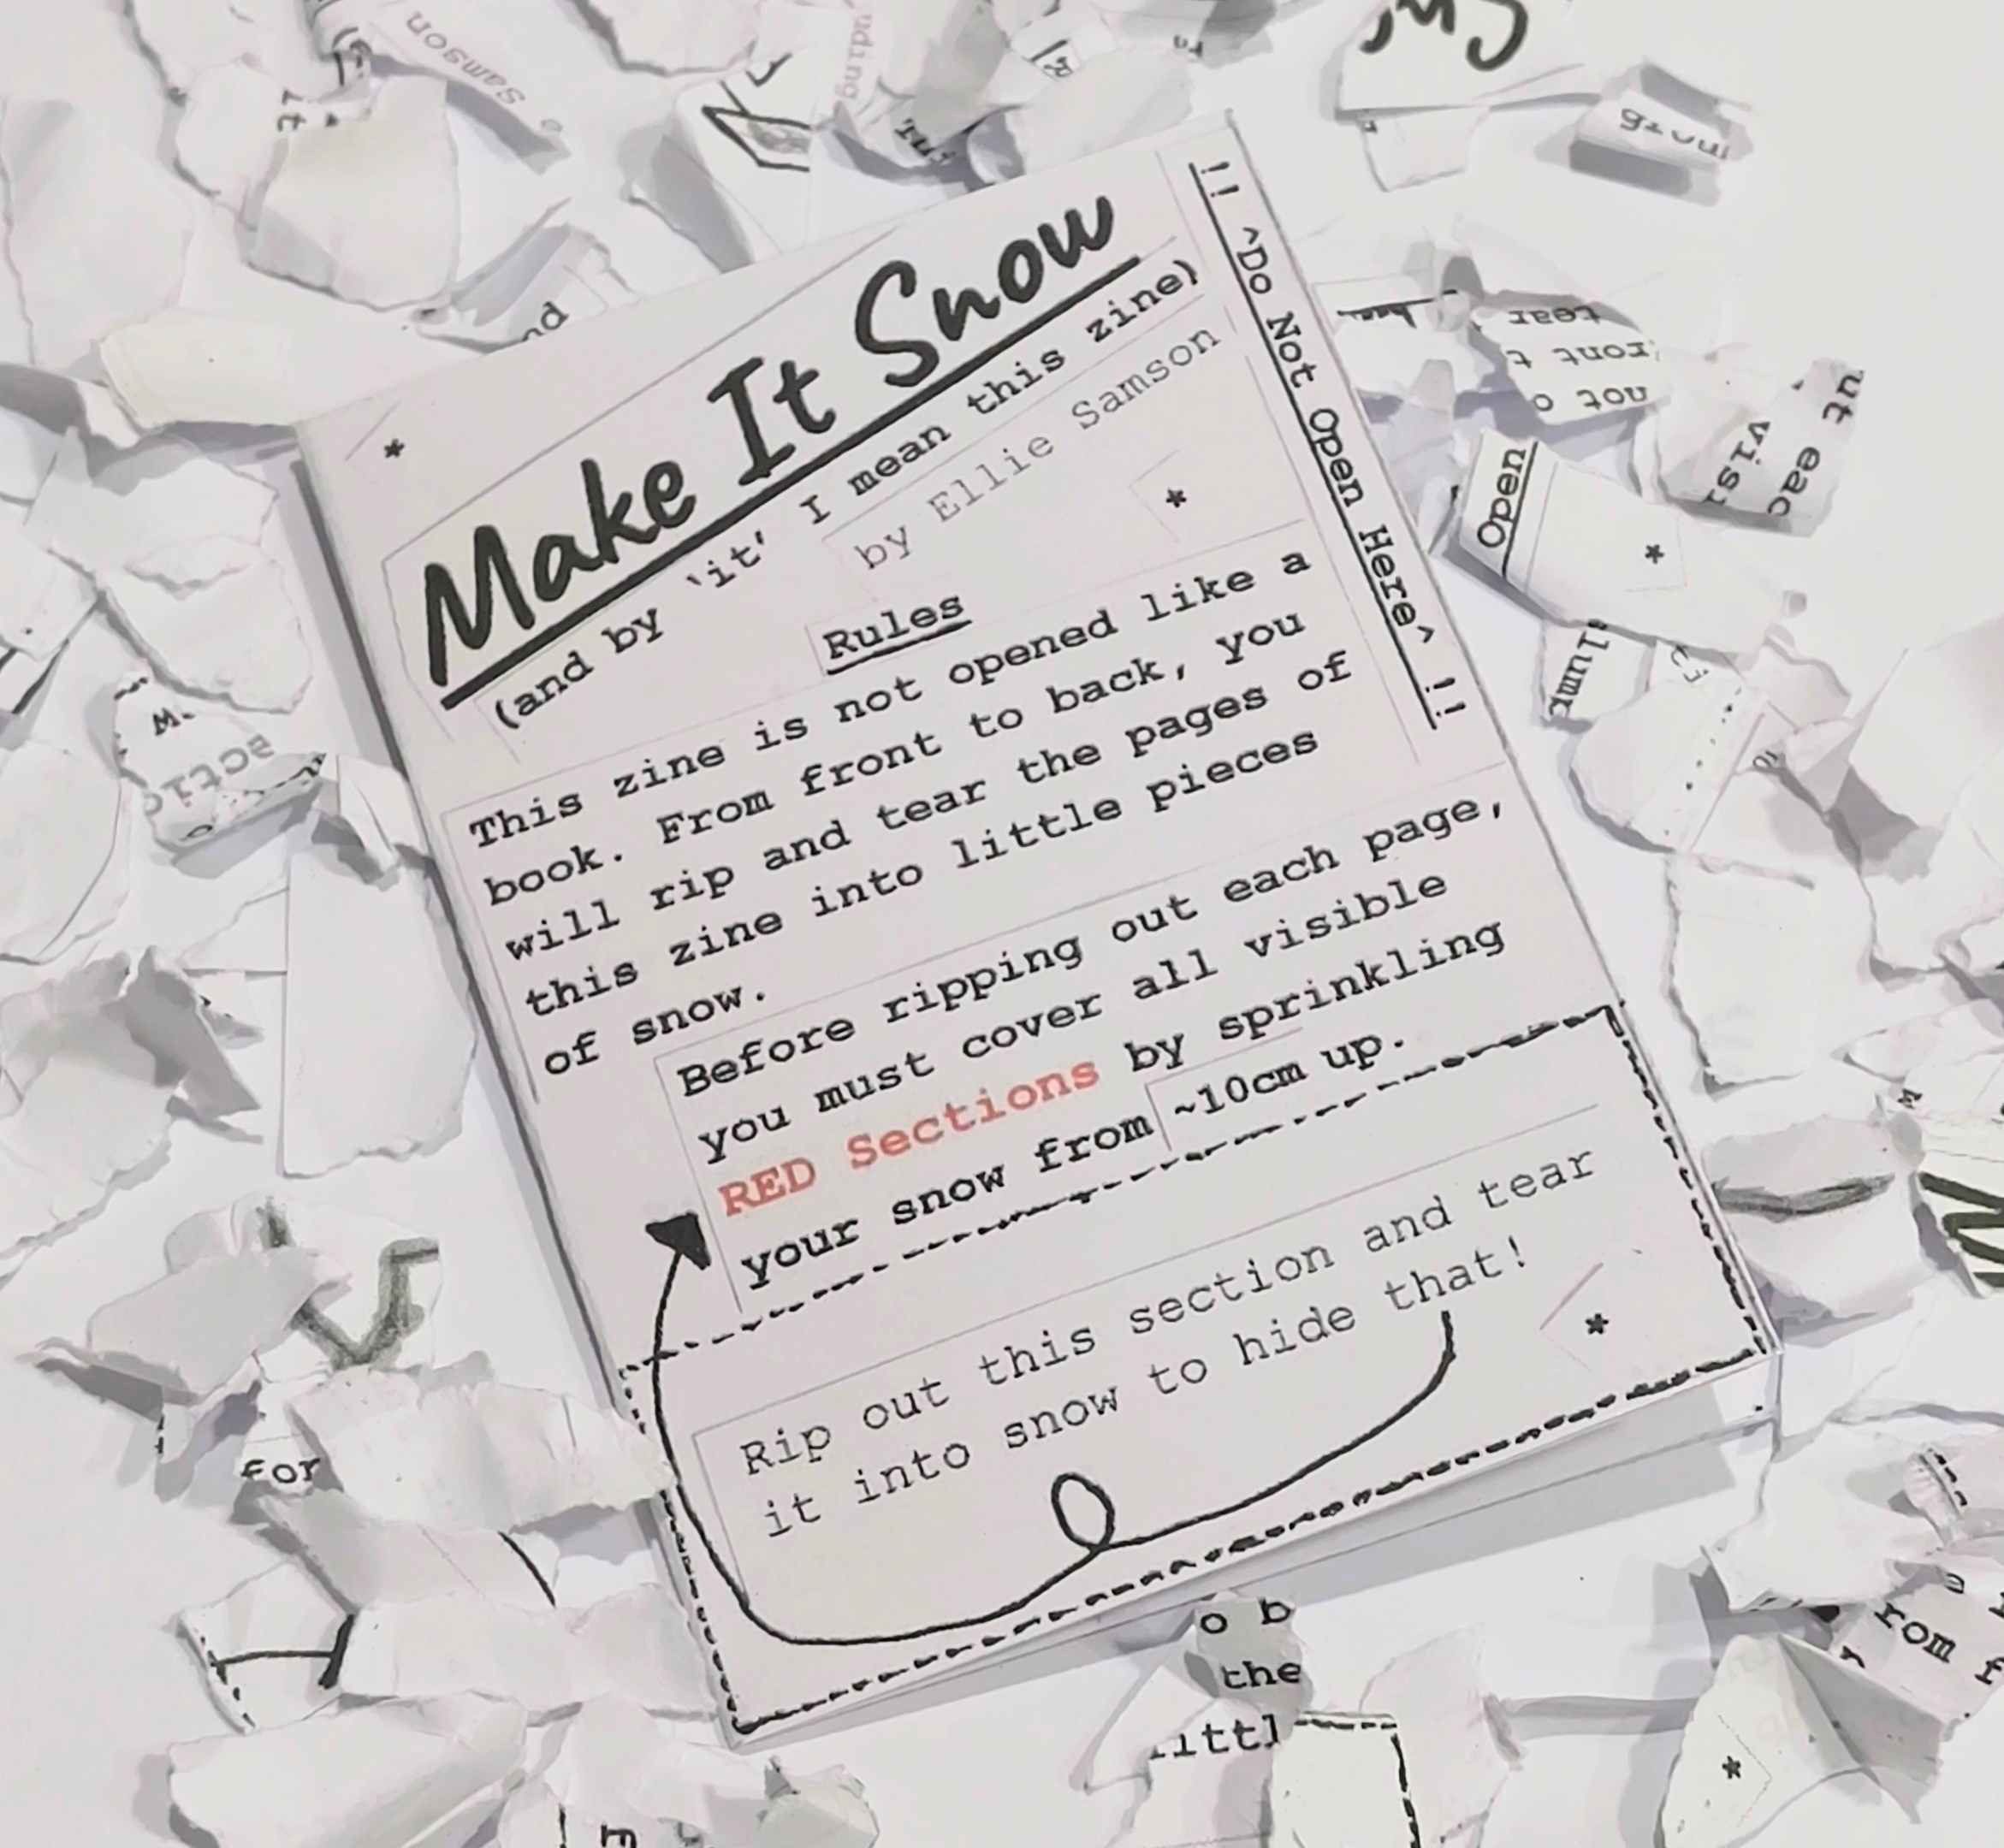 Make It Snow
(and by 'it' I mean this zine)
by Ellie Samson
!! ^Do Not Open Here^ !!
*
*
Rules
This zine is not opened like a
book. From front to back, you
will rip and tear the pages of
this zine into little pieces
of snow.
Before ripping out each page,
you must cover all visible
RED Sections by sprinkling
your snow from ~10cm up.
Rip out this section and tear
it into snow to hide that!
*
Samson
it
Open
*
tear
ront t
not o
ut eac
visi
for
o b
the
ittl
rom f
*